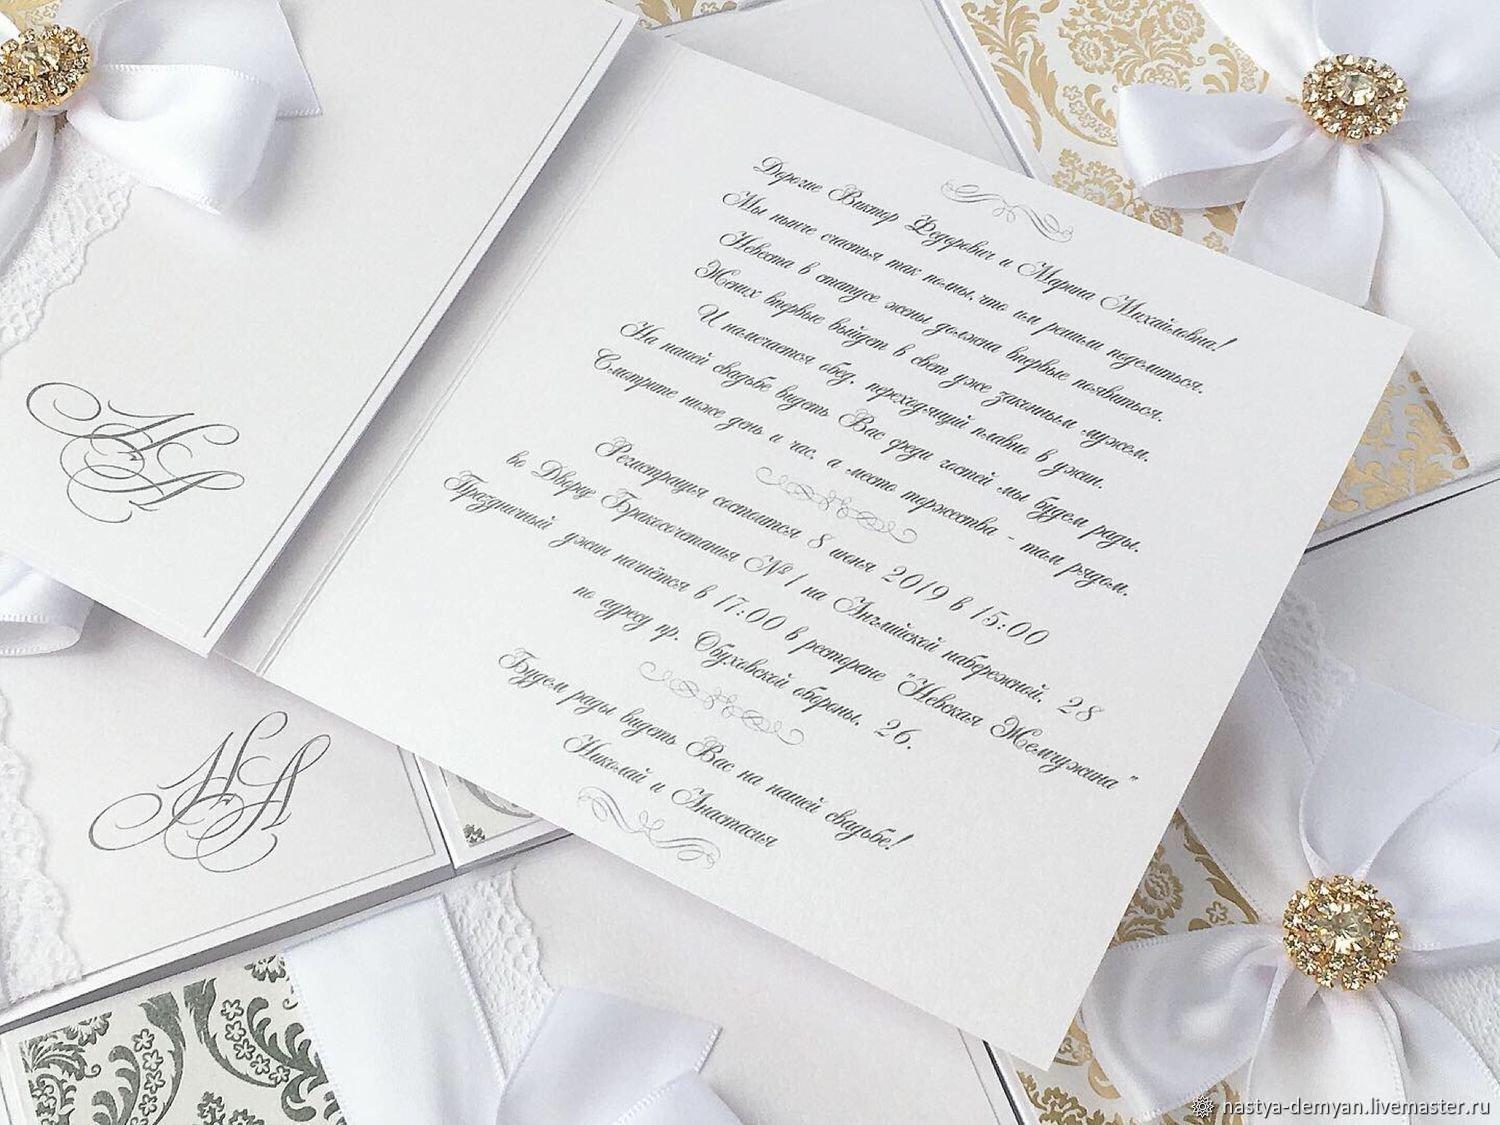 Дорогие Виктор Федорович и Марина Михайловна!
Мы ныне счастья так полны, что им решили поделиться.
Невеста в статусе жены должна впервые появиться.
Жених впервые выйдет в свет уже законным мужем.
И намечается обед, переходящий плавно в ужин.
На нашей свадьбе видеть Вас среди гостей мы будем рады.
Смотрите ниже день и час, а место торжества - там рядом.
Регистрация состоится 8 июня 2019 в 15:00
во Дворце Бракосочетания №1 на Английской набережной, 28
Праздничный ужин начнётся в 17:00 в ресторане "Невская Жемчужина"
по адресу пр. Обуховской обороны, 26.
Будем рады видеть Вас на нашей свадьбе!
Николай и Анастасия
НА
НА
nastya-demyan.livemaster.ru